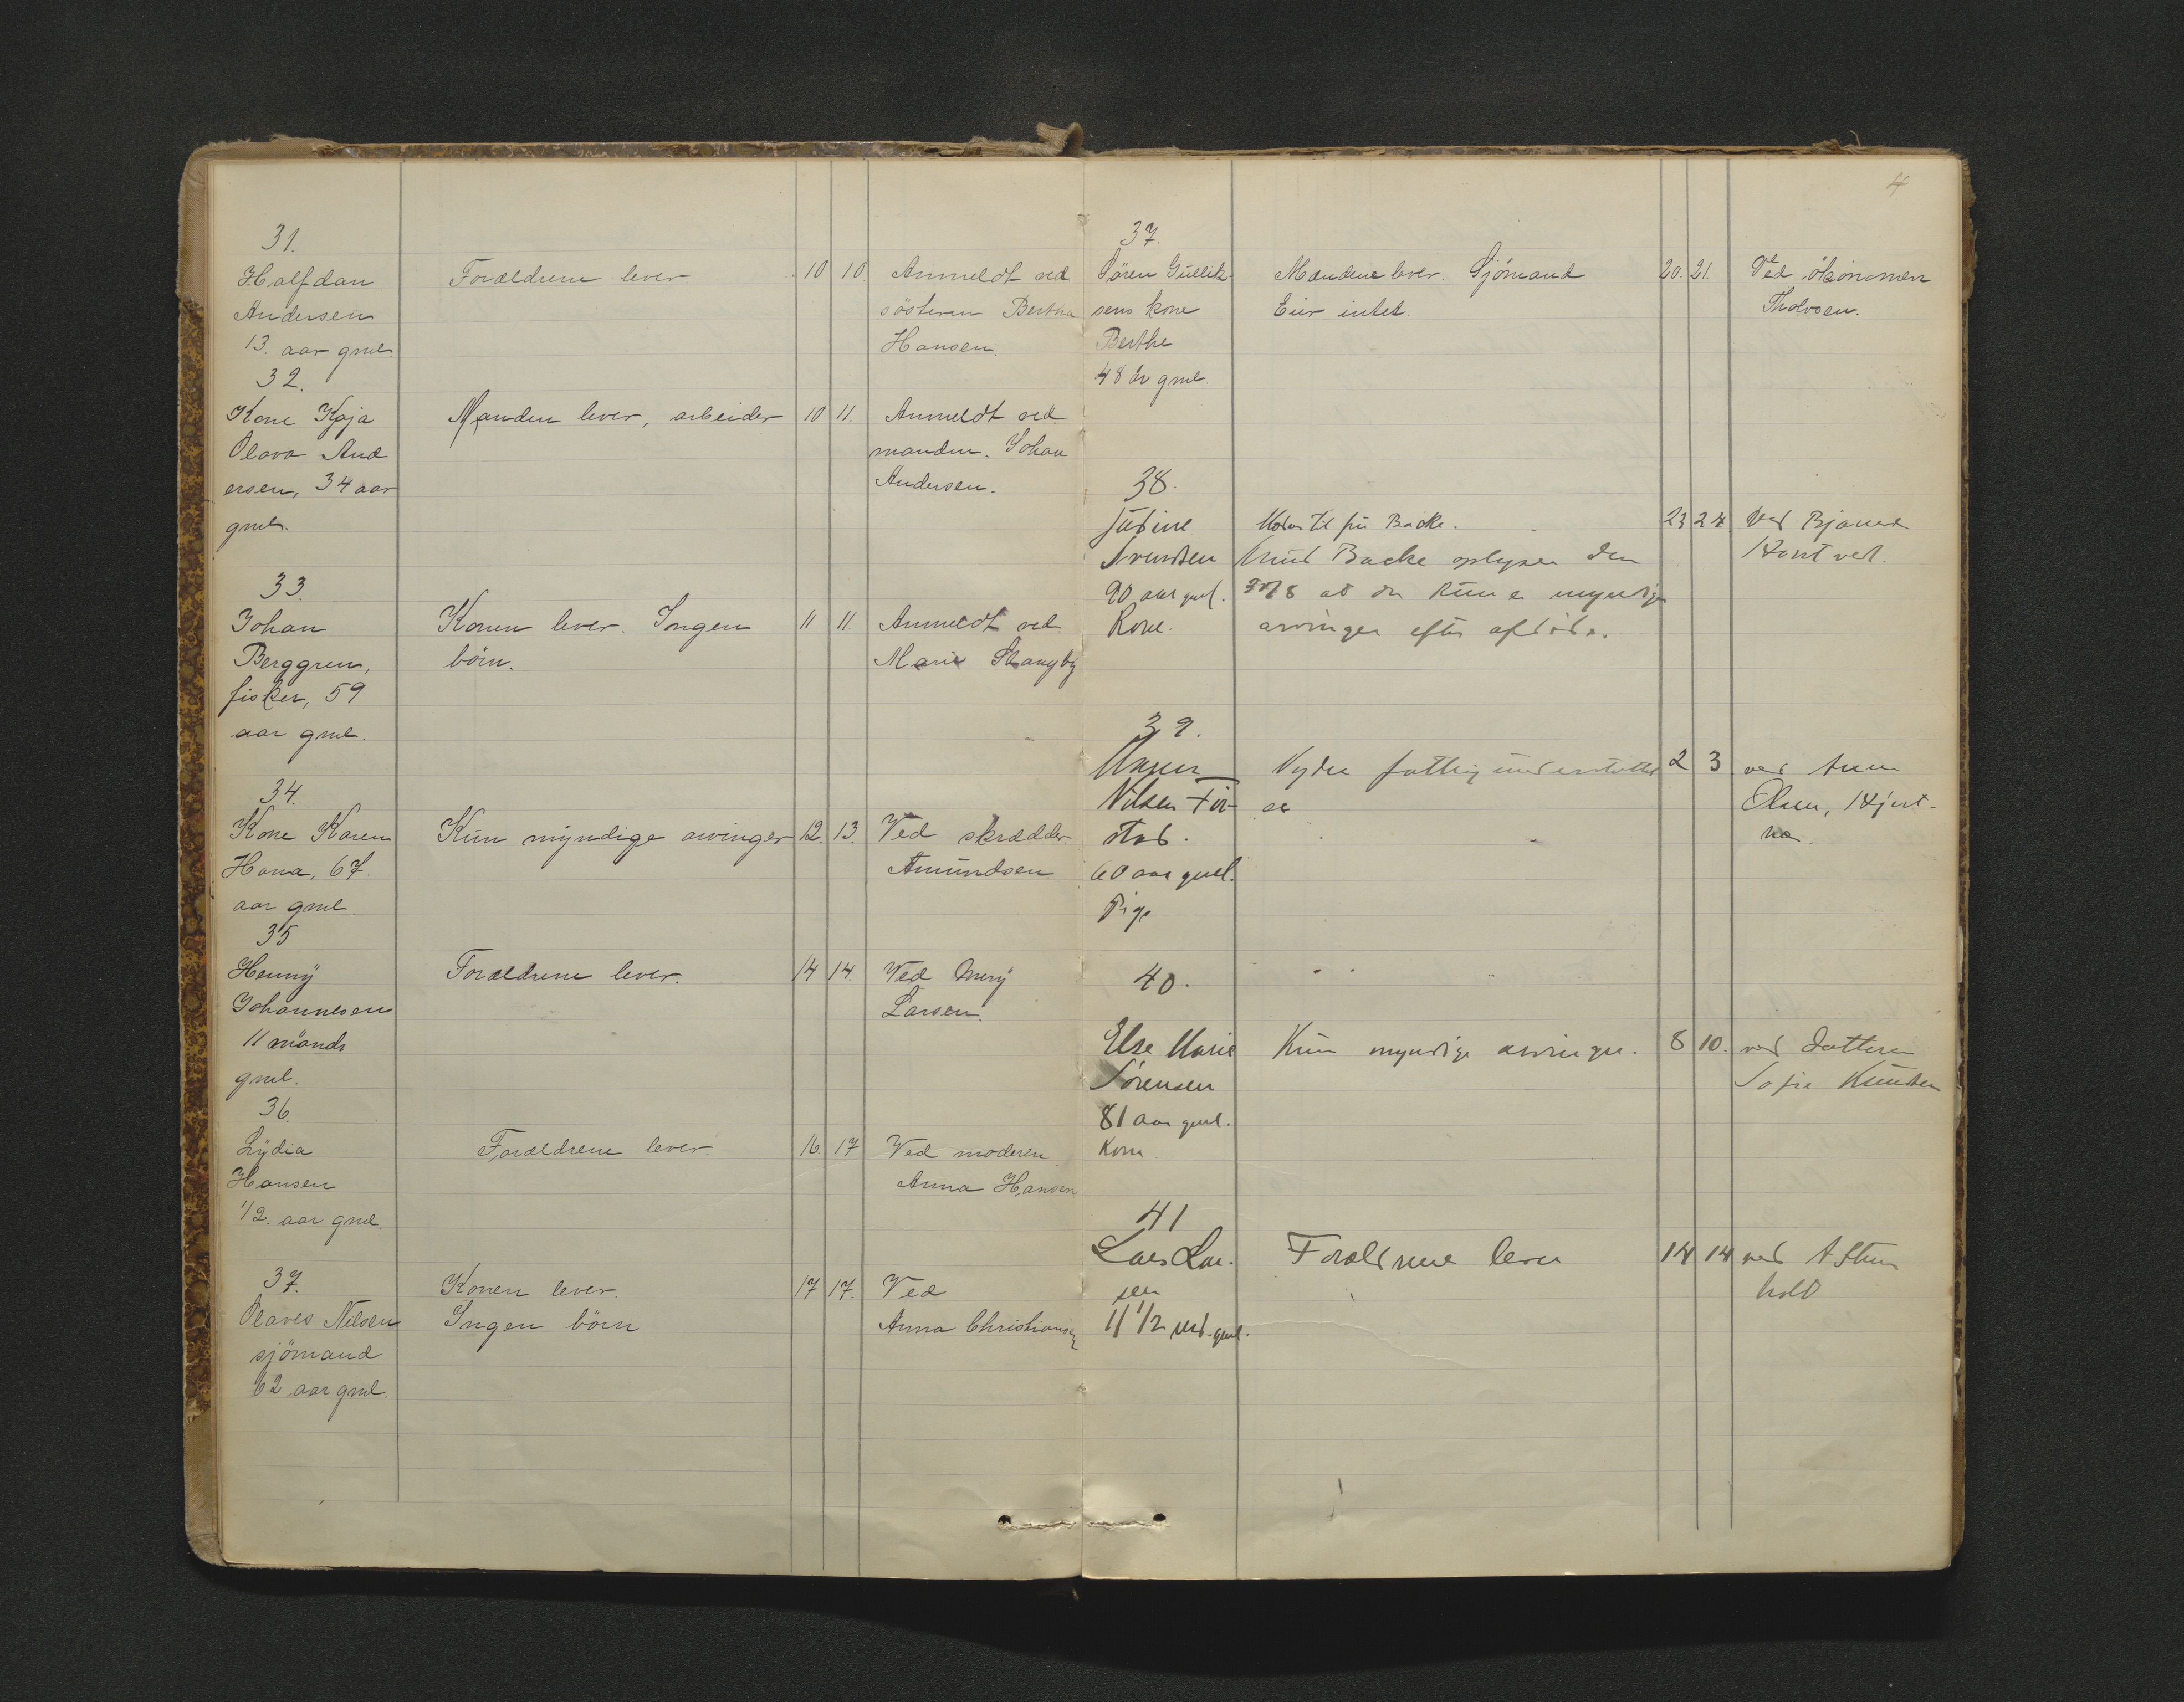 31.
Halfdan Forældrene lever. 10 10 Anmeldt ved
Andersen søsteren Bertha
13. aar gml. Hansen.
32.
Kone Kaja Manden lever, arbeider 10 11. Anmeldt ved
Olava And manden. Johan
ersen, 34 aar Andersen.
gml.
33.
Johan Konen lever. Ingen 11 11. Anmeldt ved
Berggren, börn. Marie Stangby
fisker, 59
aar gml.
34.
Kone Karen Kun myndige arvinger 12. 13. Ved skrædder
Hana, 67. Amundsen
aar gml.
35
Henny Forældrene lever. 14 14. Ved
Johannesen Larsen.
11 månds
gml.
36.
Lydia Forældrene lever. 16. 17 Ved moderen
Hansen Anna Hansen
1/2. aar gml.
37. Konen lever. 17 17. Ved
Olaves Nilsen Ingen börn Anna Christiansen
sjömand
62 aar gml.
4
37.
Sören Gullik- Mandene lever. Sjömand 20. 21. Ved ökonomen
sens kone Eier intet. Tholvsen.
Berthe
48 år gml.
38.
Moder til fru Backe. 23 24 Ved
Svendsen Knud Backe oplyser den
90 aar gml. at der kun er myndige
Kone. arvinger efter afdöde.
39.
Nyder fattigunderstöttel 2 3 ved
Nilsen se Olsen,
60 aar gml.
Pige
40.
Else Marie Kun myndige arvinger. 8 10. ved datteren
Sörensen Sofie Knudsen
81 aar gml.
Kone.
41
Lars Lar- Forældrene lever 14 14 ved
sen
11 1/2 md. gml.